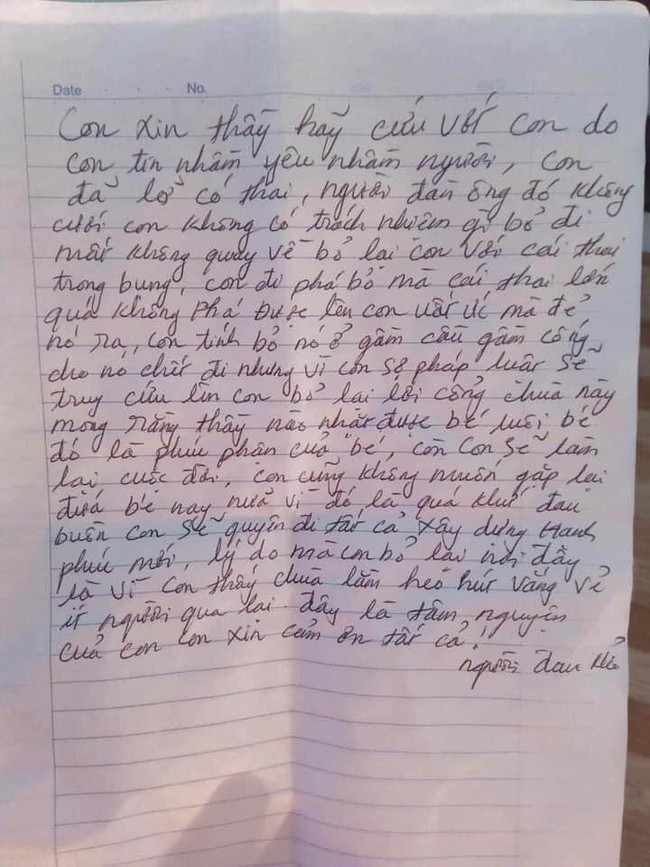 Date No.
Con xin thầy hãy cứu với con do
con tin nhầm yêu nhầm người, con
đã lỡ có thai, người đàn ông đó không
cưới con không có trách nhiệm gì bỏ đi
mất không quay về bỏ lại con với cái thai
trong bụng, con đi phá bỏ mà cái thai lớn
quá không phá được lên con uất ức mà đẻ
nó ra, con tính bỏ nó ở gầm cầu gầm cống
cho nó chết đi nhưng vì con sợ pháp luật sẽ
truy cứu lên con bỏ lại lối cổng chùa này
mong rằng thầy nào nhặt được bé nuôi bé
đó là phúc phận của bé, còn con sẽ làm
lại cuộc đời, con cũng không muốn gặp lại
đứa bé này nữa vì đó là quá khứ đau
buồn con sẽ quyên đi tất cả xây dựng hạnh
phúc mới, lý do mà con bỏ lại nơi đây
là vì con thấy chùa lằm heó hút vắng vẻ
ít người qua lại. đây là tâm nguyện
của con con xin cảm ơn tất cả!
người đau khổ